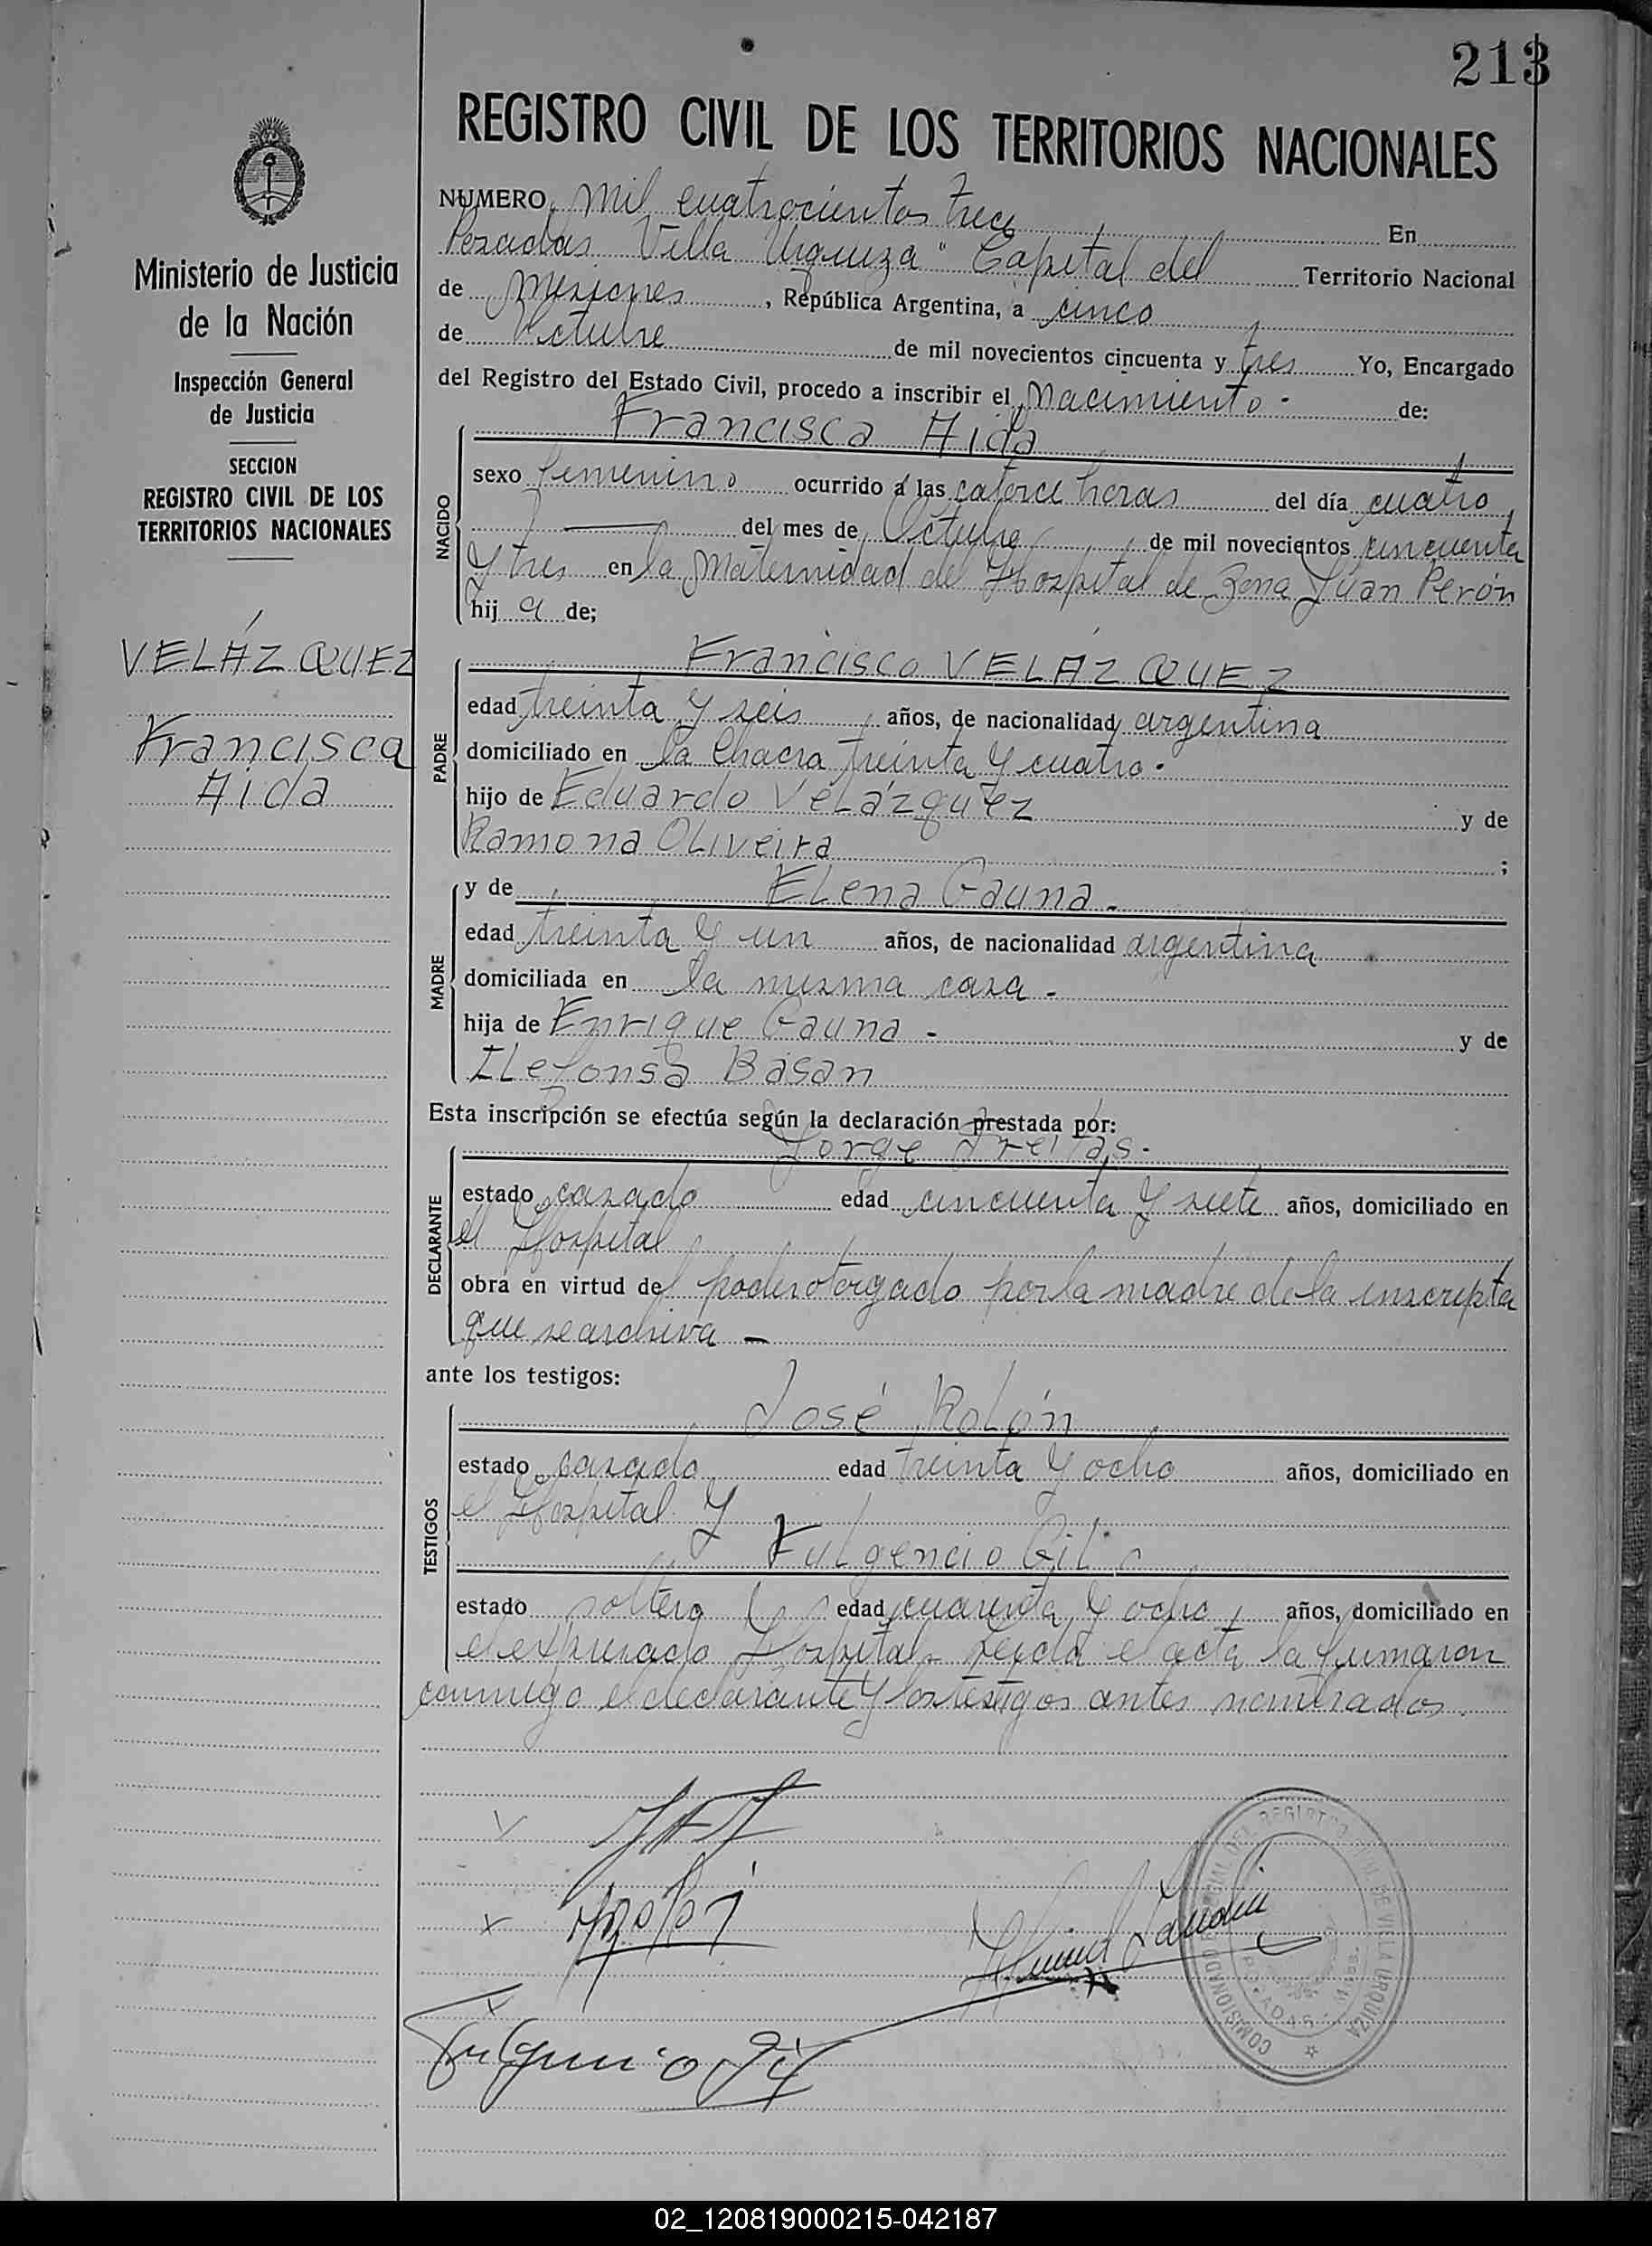 213
REGISTRO CIVIL DE LOS TERRITORIOS NACIONALES
Ministerio de Justicia
de la Nación
Inspección General
de Justicia
SECCION
REGISTRO CIVIL DE LOS
TERRITORIOS NACIONALES
VELÁZQUEZ
Francisca
Aida
NUMERO mil cuatrocientos trece En
Posadas "Villa Urquiza" Capital del Territorio Nacional
de Misiones, República Argentina, a cinco
de Octubre de mil novecientos cincuenta y tres Yo, Encargado
del Registro del Estado Civil, procedo a inscribir el Nacimiento - de:
Francisca Aida
NACIDO
sexo femenino ocurrido a las catorce horas del día cuatro
— del mes de Octubre de mil novecientos cincuenta
y tres en la Maternidad del Hospital de Zona Juan Perón
hij a de;
Francisco VELÁZQUEZ
PADRE
edad treinta y seis años, de nacionalidad argentina
domiciliado en la Chacra treinta y cuatro.
hijo de Eduardo Velázquez y de
Ramona Oliveira ;
y de Elena Gauna.
MADRE
edad treinta y un años, de nacionalidad argentina
domiciliada en la misma casa -
hija de Enrique Gauna - y de
Ilefonsa Basan
Esta inscripción se efectúa según la declaración prestada por:
Jorge Freitas.
DECLARANTE
estado casado edad cincuenta y siete años, domiciliado en
el Hospital
obra en virtud del poder otorgado por la madre de la inscripta
que se archiva —
ante los testigos:
José Rolón
TESTIGOS
estado casado edad treinta y ocho años, domiciliado en
el Hospital y
Fulgencio Gil
estado soltero edad cuarenta y ocho, años, domiciliado en
el expresado Hospital. Leída el acta la firmaron
conmigo el declarante y los testigos antes nombrados.
Fulgencio Gil
COMISIONADO DEL REGISTRO DE VILLA URQUIZA
POSADAS - MISS.
02_120819000215-042187